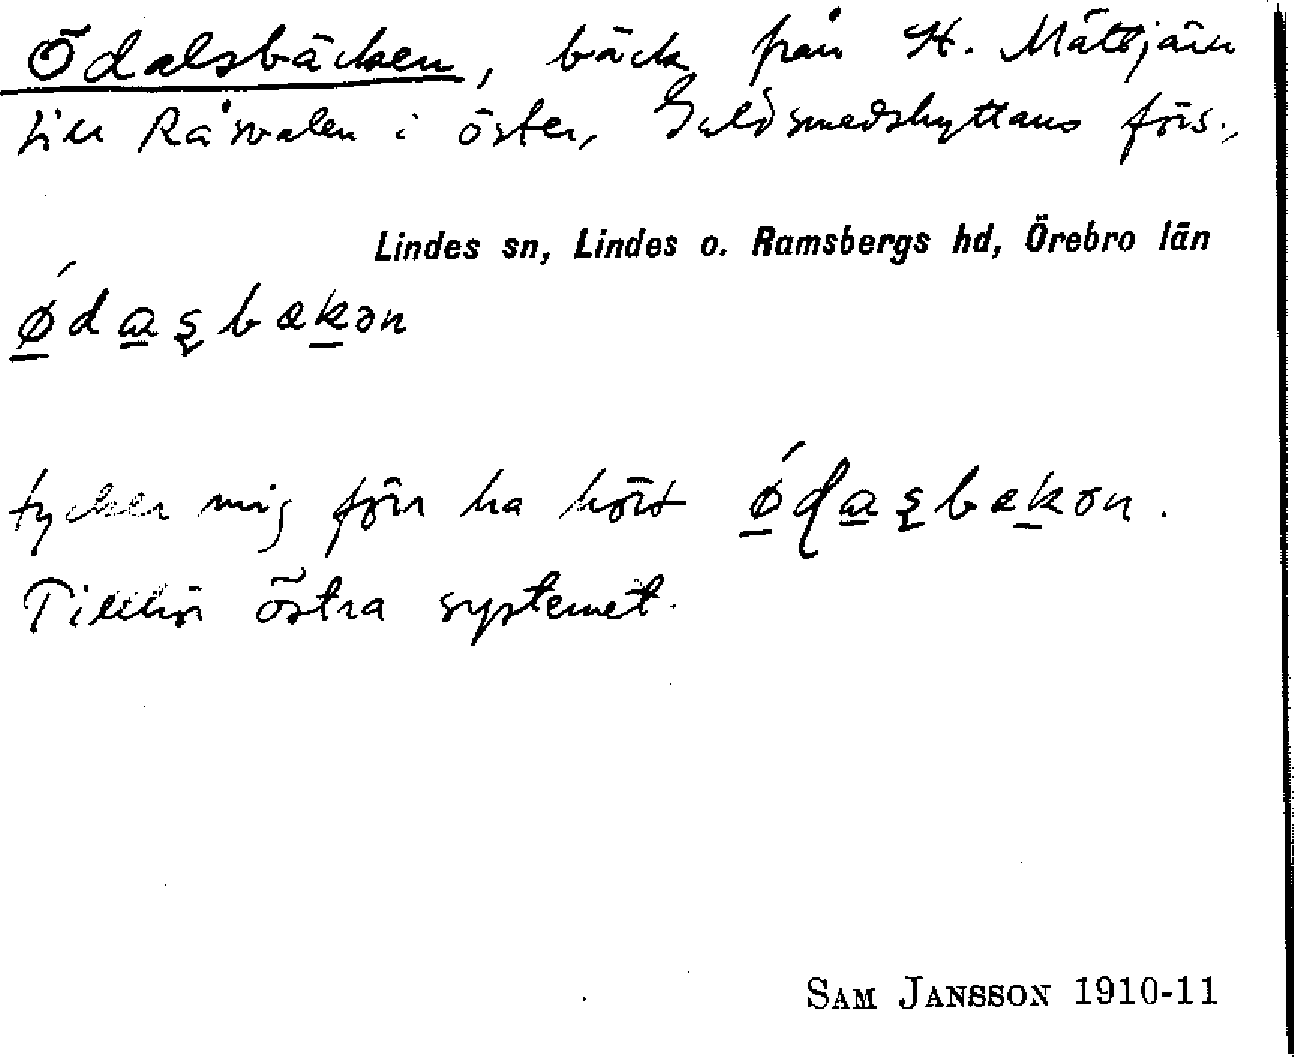 Ödalsbäcken, bäck från St. Mättjärn
till Råsvalen i öster, Guldsmedshyttans förs.,
Lindes sn, Lindes o. Ramsbergs hd, Örebro län
ǿdaʂbækən
tycker mig förr ha hört ǿɖaʂbækən.
Tillhör östra systemet.
SAM JANSSON 1910-11